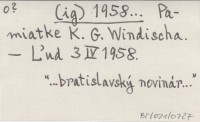 o?
(ig) 1958... Pa-
miatke K. G. Windischa.
— Ľud 3 IV 1958.
"...bratislavský novinár..."